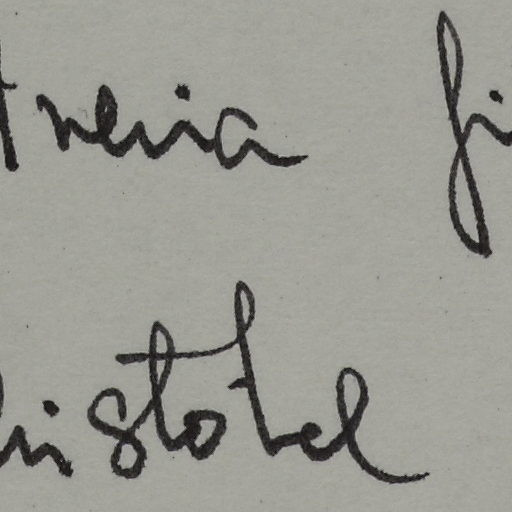 treia fi
ristotel